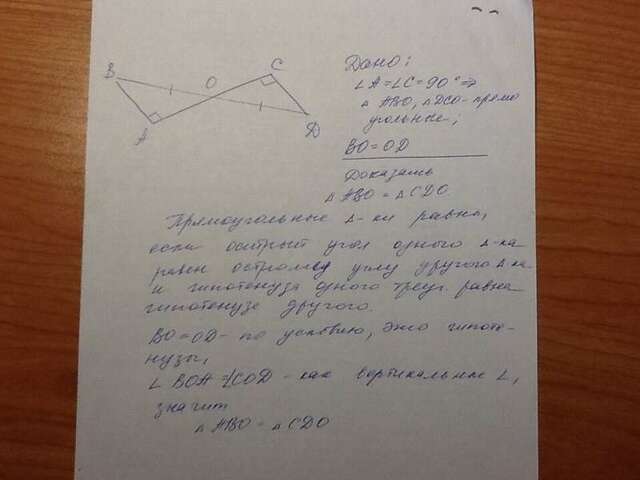 B
O
C
A
D
Дано:
∠A=∠C=90°⇒
△ ABO, △DCO-прямо
угольные;
BO=OD
Доказать
△ ABO = △CDO
Прямоугольные △-ки равны,
если острый угол одного △-ка
равен острому углу другого △-ка
и гипотенуза одного треуг. равна
гипотенузе другого.
BO=OD- по условию, это гипоте-
нузы,
∠ BOA =∠COD - как вертикальные ∠,
значит
△ ABO = △ CDO